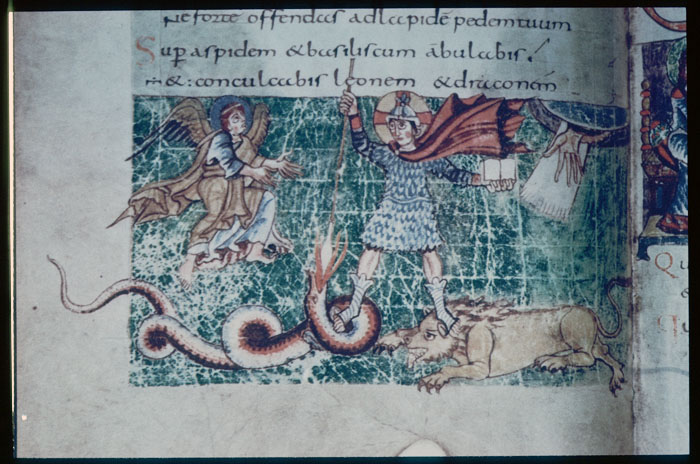 Ne forte offendas ad lapidē pedem tuum
Sup aspidem & basiliscum ābulabis;
& conculcabis leonem & draconem
Q